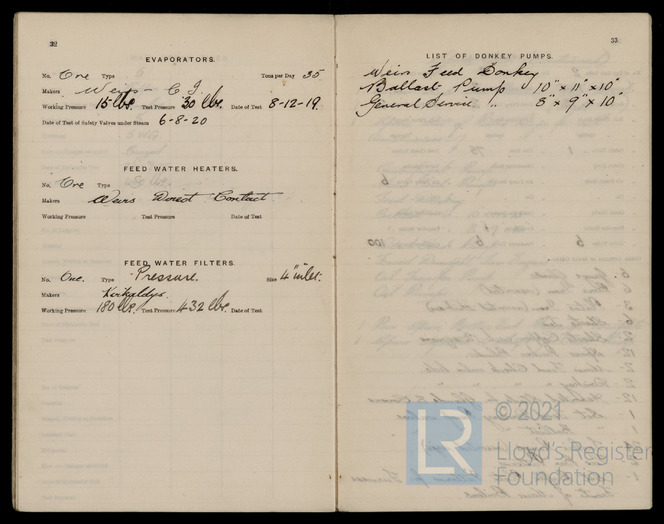 32
EVAPORATORS.
No. One Type Tons per Day 35
Makers Weirs - C.I.
Working Pressure 15 lbs. Test Pressure 30 lbs. Date of Test 8-12-19.
Date of Test of Safety Valves under Steam 6-8-20
FEED WATER HEATERS.
No. One Type
Makers Weirs Direct Contact
Working Pressure Test Pressure Date of Test
FEED WATER FILTERS.
No. One. Type Pressure. Size 4" inlet.
Makers Kirkaldys
Working Pressure 180 lbs. Test Pressure 432 lbs. Date of Test
33
LIST OF DONKEY PUMPS.
Weirs Feed Donkey
Ballast Pump 10" x 11" x 10"
General Service " 8" x 9" x 10"
LR
© 2021
Lloyd's Register
Foundation